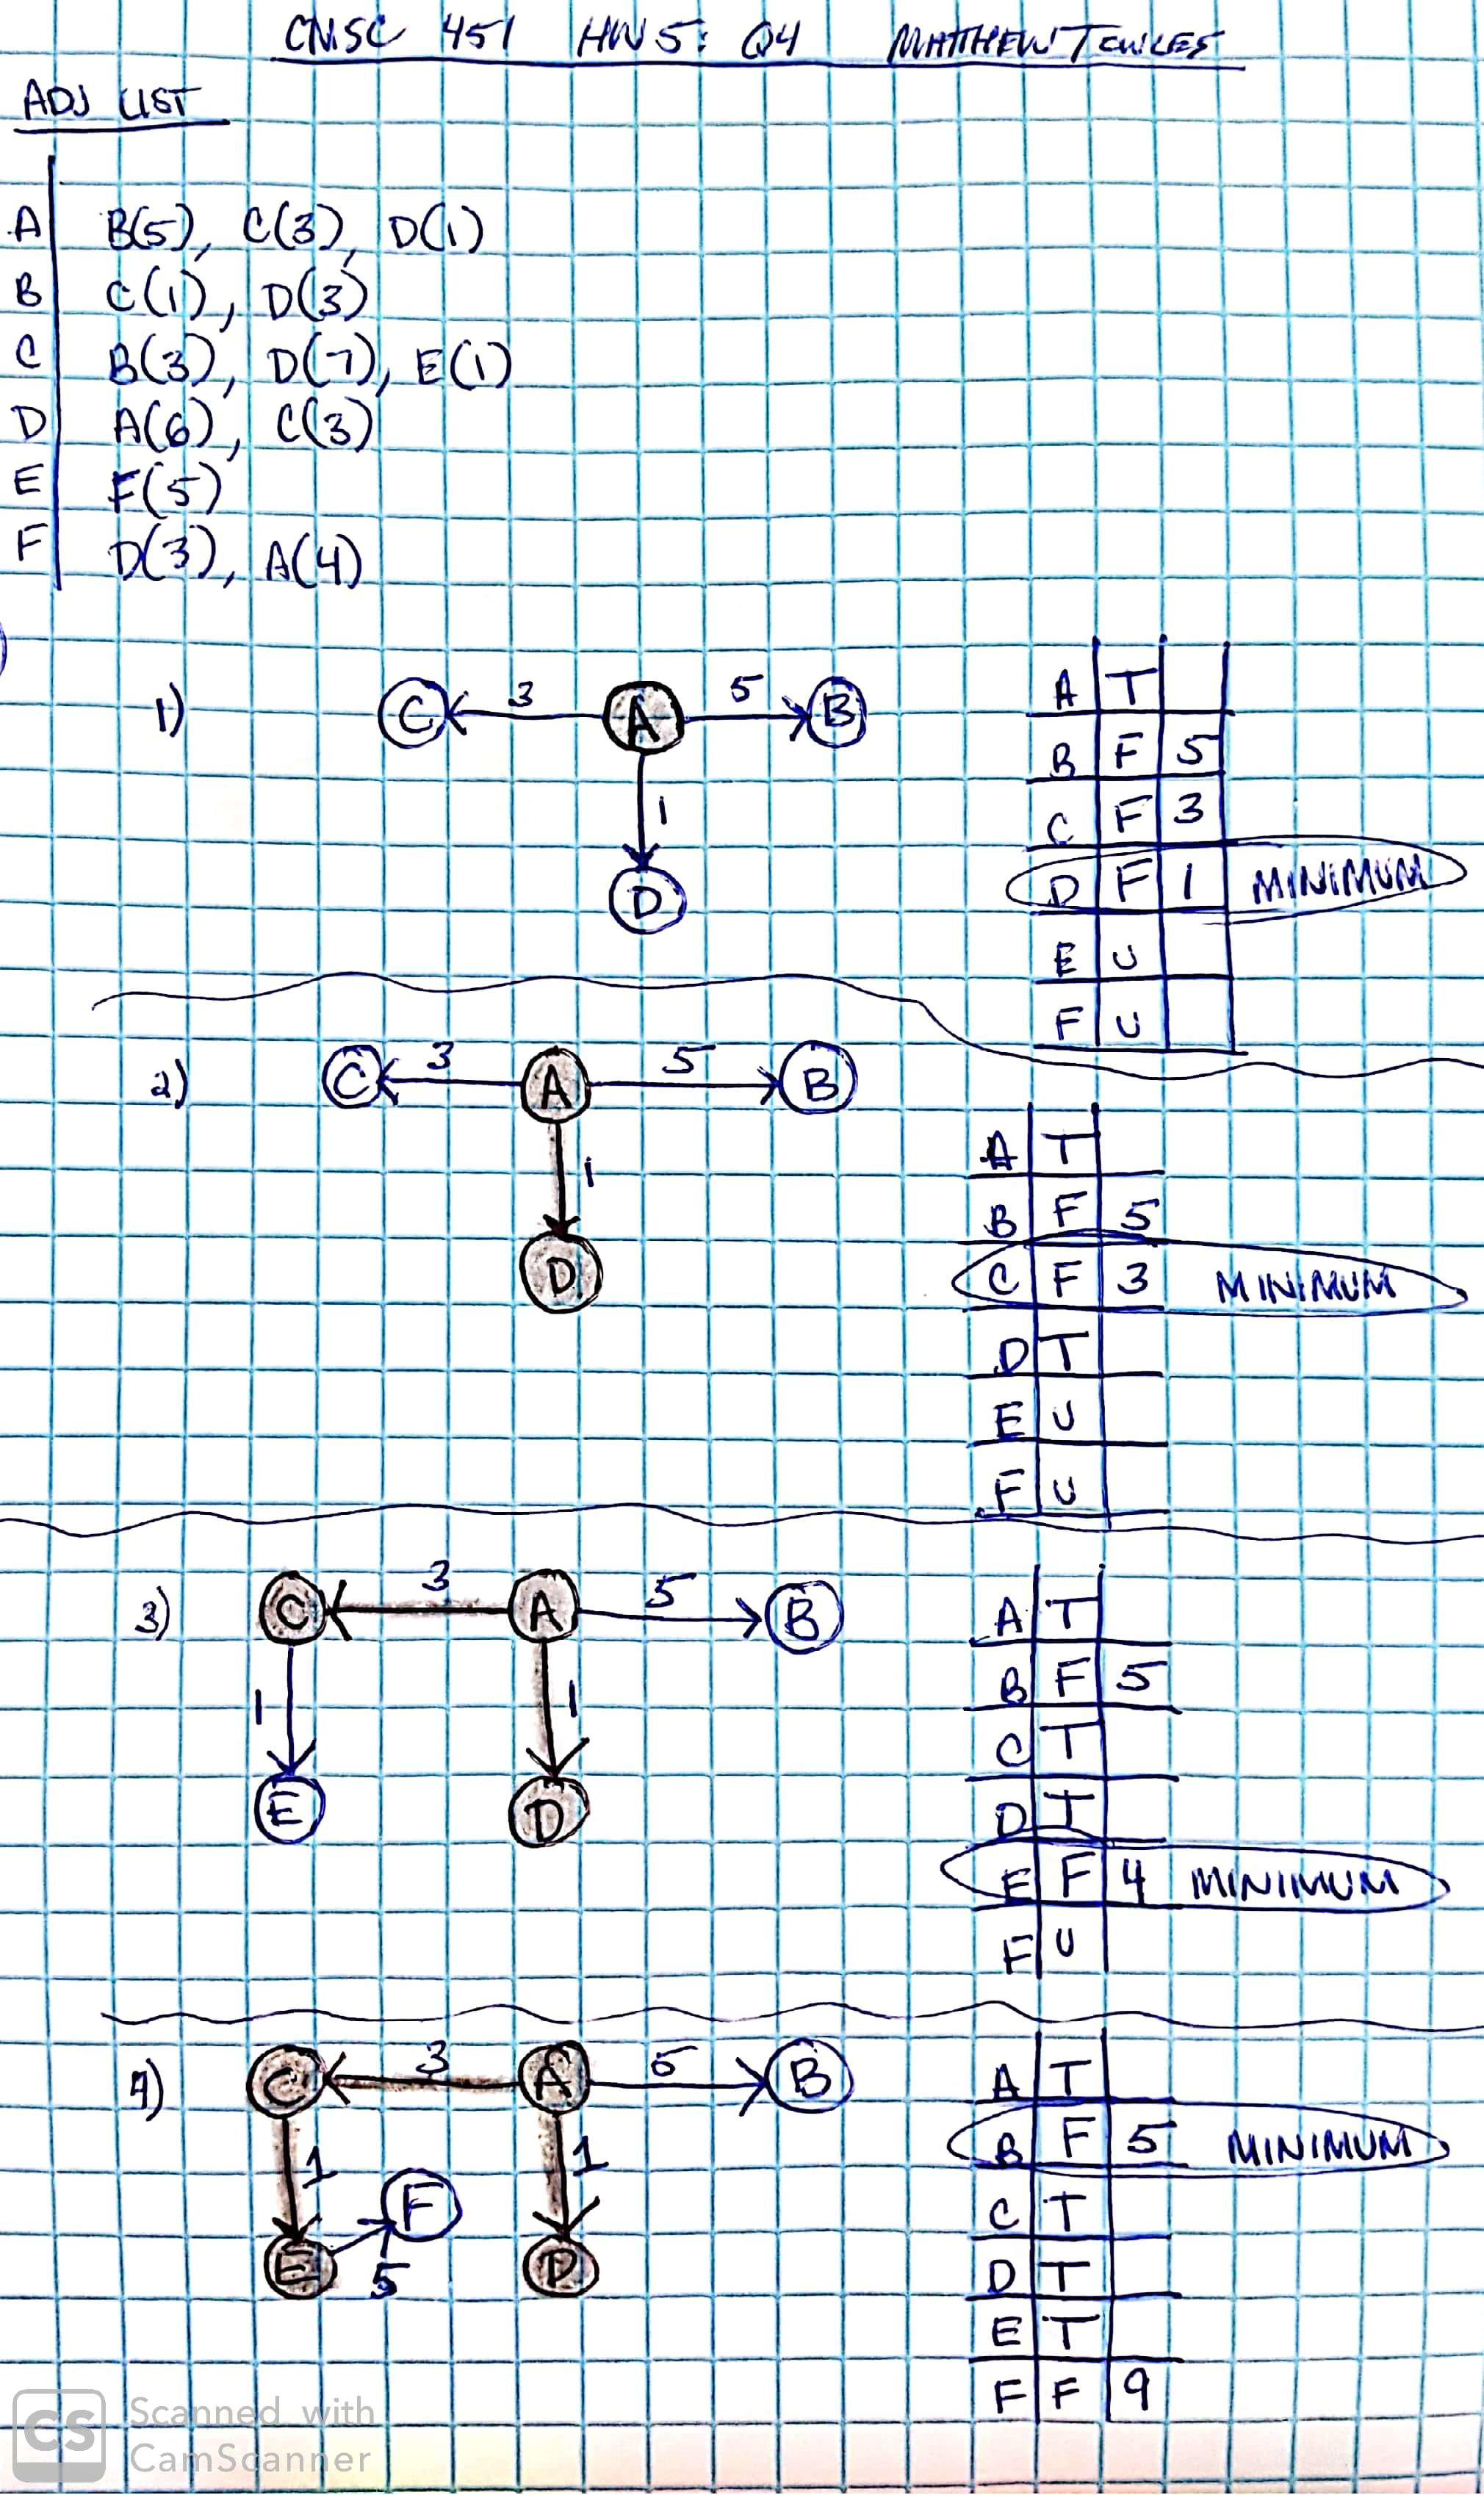 CMSC 451 HW5: Q4 MATTHEW TOWLES
ADJ LIST
A B(5), C(3), D(1)
B C(1), D(3)
C B(3), D(7), E(1)
D A(6), C(3)
E F(5)
F D(3), A(4)
1)
C 3 A 5 B
1
D
A T
B F 5
C F 3
D F 1 MINIMUM
E U
F U
2)
C 3 A 5 B
1
D
A T
B F 5
C F 3 MINIMUM
D T
E U
F U
3)
C 3 A 5 B
1 1
E D
A T
B F 5
C T
D T
E F 4 MINIMUM
F U
4)
C 3 A 5 B
1 1
F
E 5 D
A T
B F 5 MINIMUM
C T
D T
E T
F F 9
CS Scanned with
CamScanner